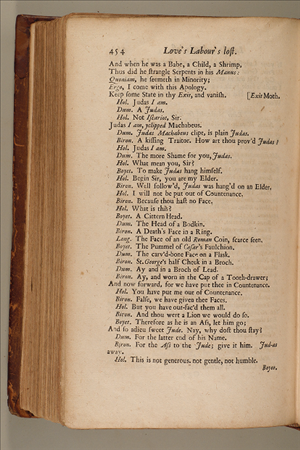 454 Love's Labour's lost.
And when he was a Babe, a Child, a Shrimp,
Thus did he strangle Serpents in his Manus:
Quoniam, he seemeth in Minority;
Ergo, I come with this Apology.
Keep some State in thy Exit, and vanish. [Exit Moth.
Hol. Judas I am.
Dum. A Judas.
Hol. Not Iscariot, Sir.
Judas I am, yclipped Machabeus.
Dum. Judas Machabeus clipt, is plain Judas.
Biron. A kissing Traitor. How art thou prov'd Judas?
Hol. Judas I am.
Dum. The more Shame for you, Judas.
Hol. What mean you, Sir?
Boyet. To make Judas hang himself.
Hol. Begin Sir, you are my Elder.
Biron. Well follow'd, Judas was hang'd on an Elder.
Hol. I will not be put out of Countenance.
Biron. Because thou hast no Face.
Hol. What is this?
Boyet. A Cittern Head.
Dum. The Head of a Bodkin.
Biron. A Death's Face in a Ring.
Long. The Face of an old Roman Coin, scarce seen.
Boyet. The Pummel of Cæsar's Faulchion.
Dum. The carv'd-bone Face on a Flask.
Biron. St. George's half Cheek in a Broch.
Dum. Ay and in a Broch of Lead.
Biron. Ay, and worn in the Cap of a Tooth-drawer;
And now forward, for we have put thee in Countenance.
Hol. You have put me out of Countenance.
Biron. False, we have given thee Faces.
Hol. But you have out-fac'd them all.
Biron. And thou wert a Lion we would do so.
Boyet. Therefore as he is an Ass, let him go;
And so adieu sweet Jude. Nay, why dost thou stay?
Dum. For the latter end of his Name.
Biron. For the Ass to the Jude; give it him. Jud-as
away.
Hol. This is not generous, not gentle, not humble.
Boyet.